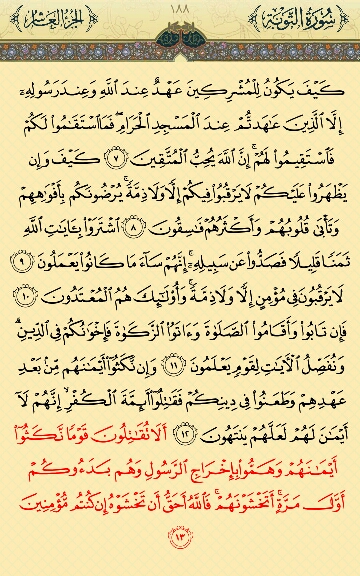 الجزء العاشر ١٨٨ سورة التوبة
كَيْفَ يَكُونُ لِلْمُشْرِكِينَ عَهْدٌ عِندَ ٱللَّهِ وَعِندَ رَسُولِهِۦٓ
إِلَّا ٱلَّذِينَ عَٰهَدتُّمْ عِندَ ٱلْمَسْجِدِ ٱلْحَرَامِ ۖ فَمَا ٱسْتَقَٰمُوا۟ لَكُمْ
فَٱسْتَقِيمُوا۟ لَهُمْ ۚ إِنَّ ٱللَّهَ يُحِبُّ ٱلْمُتَّقِينَ ٧ كَيْفَ وَإِن
يَظْهَرُوا۟ عَلَيْكُمْ لَا يَرْقُبُوا۟ فِيكُمْ إِلًّا وَلَا ذِمَّةً ۚ يُرْضُونَكُم بِأَفْوَٰهِهِمْ
وَتَأْبَىٰ قُلُوبُهُمْ وَأَكْثَرُهُمْ فَٰسِقُونَ ٨ ٱشْتَرَوْا۟ بِـَٔايَٰتِ ٱللَّهِ
ثَمَنًا قَلِيلًا فَصَدُّوا۟ عَن سَبِيلِهِۦٓ ۚ إِنَّهُمْ سَآءَ مَا كَانُوا۟ يَعْمَلُونَ ٩
لَا يَرْقُبُونَ فِى مُؤْمِنٍ إِلًّا وَلَا ذِمَّةً ۚ وَأُو۟لَٰٓئِكَ هُمُ ٱلْمُعْتَدُونَ ١٠
فَإِن تَابُوا۟ وَأَقَامُوا۟ ٱلصَّلَوٰةَ وَءَاتَوُا۟ ٱلزَّكَوٰةَ فَإِخْوَٰنُكُمْ فِى ٱلدِّينِ ۗ
وَنُفَصِّلُ ٱلْـَٔايَٰتِ لِقَوْمٍ يَعْلَمُونَ ١١ وَإِن نَّكَثُوٓا۟ أَيْمَٰنَهُم مِّنۢ بَعْدِ
عَهْدِهِمْ وَطَعَنُوا۟ فِى دِينِكُمْ فَقَٰتِلُوٓا۟ أَئِمَّةَ ٱلْكُفْرِ ۙ إِنَّهُمْ لَآ
أَيْمَٰنَ لَهُمْ لَعَلَّهُمْ يَنتَهُونَ ١٢ أَلَا تُقَٰتِلُونَ قَوْمًا نَّكَثُوٓا۟
أَيْمَٰنَهُمْ وَهَمُّوا۟ بِإِخْرَاجِ ٱلرَّسُولِ وَهُم بَدَءُوكُمْ
أَوَّلَ مَرَّةٍ ۚ أَتَخْشَوْنَهُمْ ۚ فَٱللَّهُ أَحَقُّ أَن تَخْشَوْهُ إِن كُنتُم مُّؤْمِنِينَ
١٣